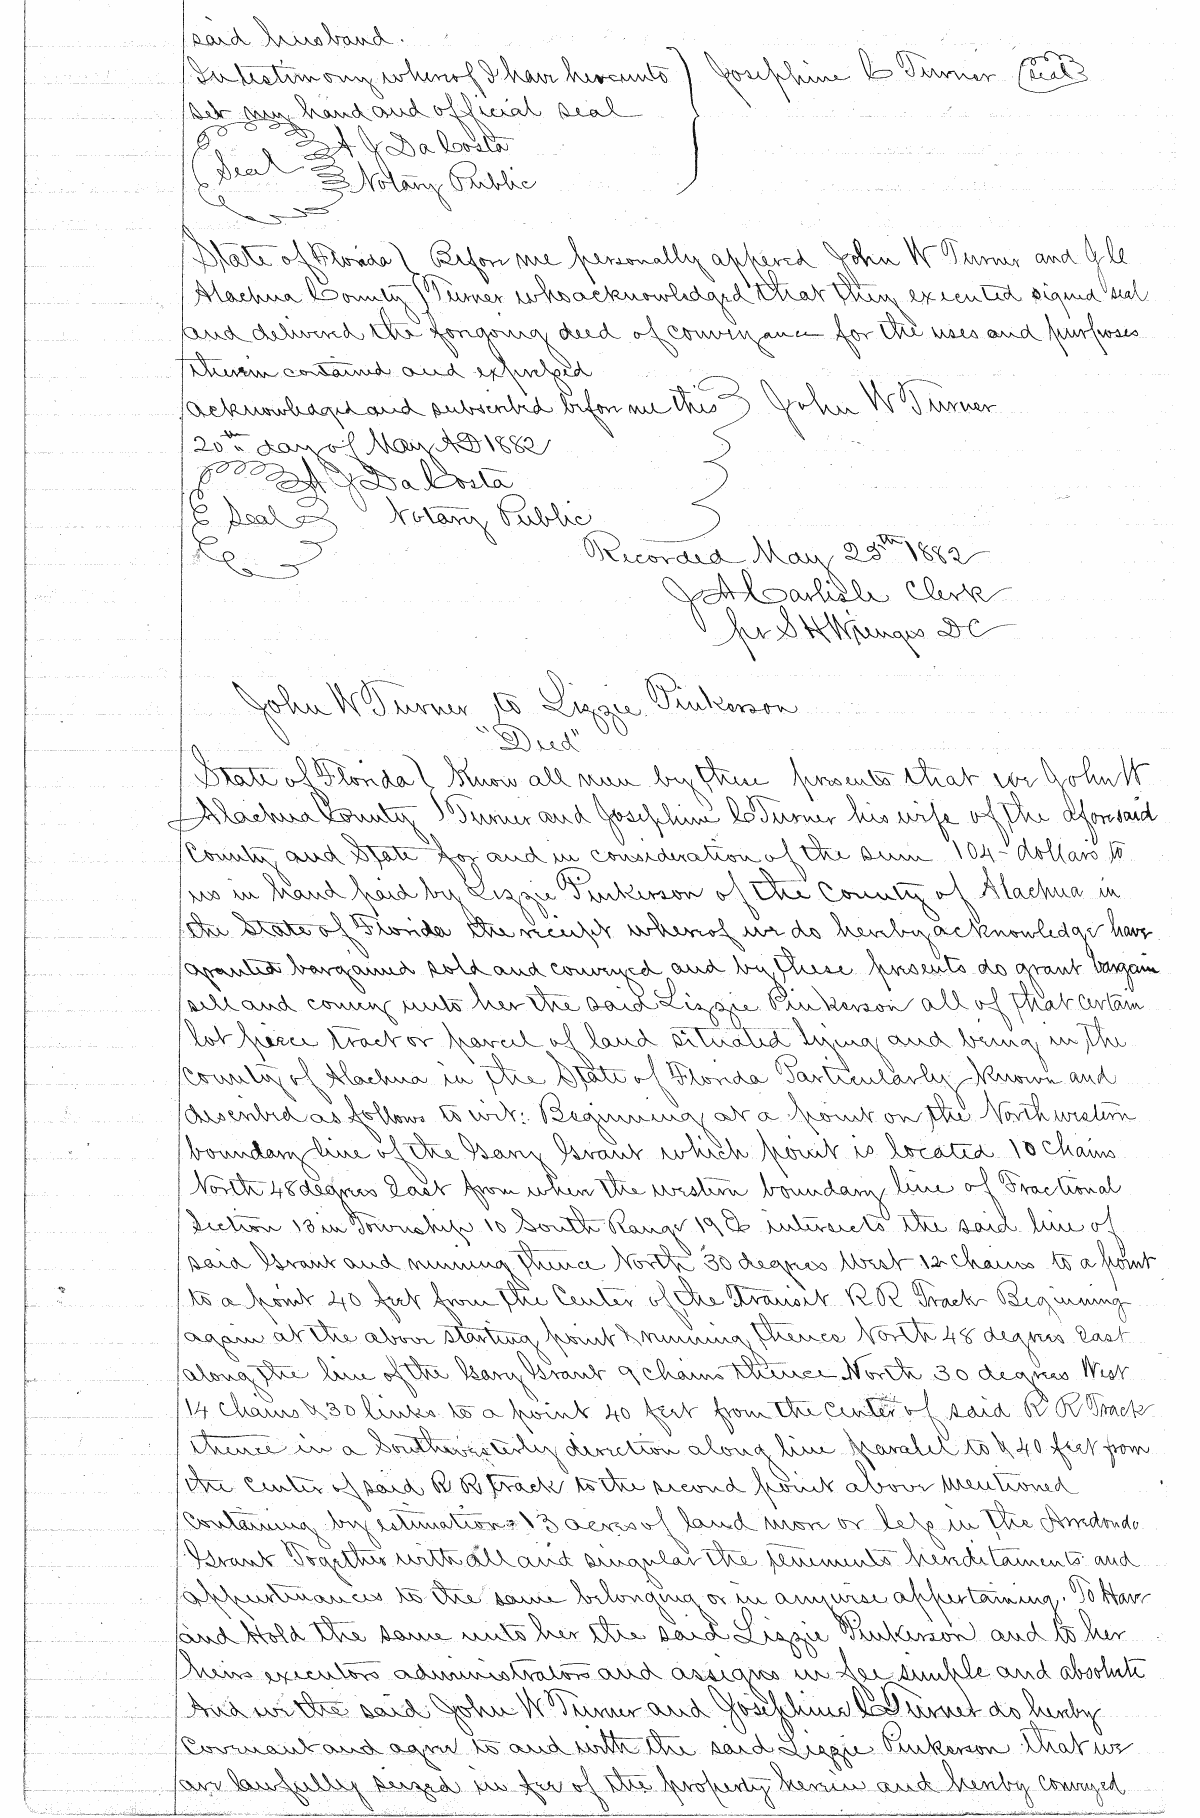 said husband.
In testimony whereof I have hereunto ) Josephine C Turner (Seal)
set my hand and official seal
A J Da Costa
(Seal
Notary Public
State of Florida ) Before me personally appered John W Turner and
Alachua County ) Turner who acknowledged that they executed signed seal
and deliverd the forgoing deed of conveyance for the uses and purposes
therein contained and expressed
Acknowledged and subscribed before me this } John W Turner
20th day of May AD 1882
A J Da Costa
Seal Notary Public
Recorded May 25th 1882
J A Carlisle Clerk
pr S H Wienges DC
John W Turner to Lizzie Pinkerson
"Deed"
State of Florida ) Know all men by these presents that we John W
Alachua County ) Turner and Josephine C Turner his wife of the aforesaid
County and State for and in consideration of the sum 104- dollars to
us in hand paid by Lizzie Pinkerson of the County of Alachua in
the State of Florida the receipt whereof we do hereby acknowledge have
granted bargained sold and conveyed and by these presents do grant bargain
sell and convey unto her the said Lizzie Pinkerson all of that certain
lot piece tract or parcel of land situated lying and being in the
County of Alachua in the State of Florida Particularly Known and
described as follows to wit: Beginning at a point on the North western
boundary line of the Gary Grant which point is located 10 Chains
North 48 degrees East from when the western boundary line of Fractional
Section 13 in Township 10 South Range 19 E intersects the said line of
said Grant and running thence North 30 degrees West 12 Chains to a point
to a point 40 feet from the Center of the Transit R R Track Beginning
again at the above starting point & running thence North 48 degrees East
along the line of the Gary Grant 9 chains thence North 30 degrees West
14 Chains & 30 links to a point 40 feet from the Center of said R R Track
thence in a Southwesterly direction along line paralel to & 40 feet from
the Center of said R R track to the second point above mentioned
Containing by estimation 13 acres of land more or less in the Arredondo
Grant Together with all and singular the tenements hereditaments and
appurtenances to the same belonging or in anywise appertaining. To Have
and Hold the same unto her the said Lizzie Pinkerson and to her
heirs executors administrators and assigns in fee simple and absolute
And we the said John W Turner and Josephine C Turner do hereby
Covenant and agree to and with the said Lizzie Pinkerson that we
are lawfully seized in fee of the property herein and hereby conveyed